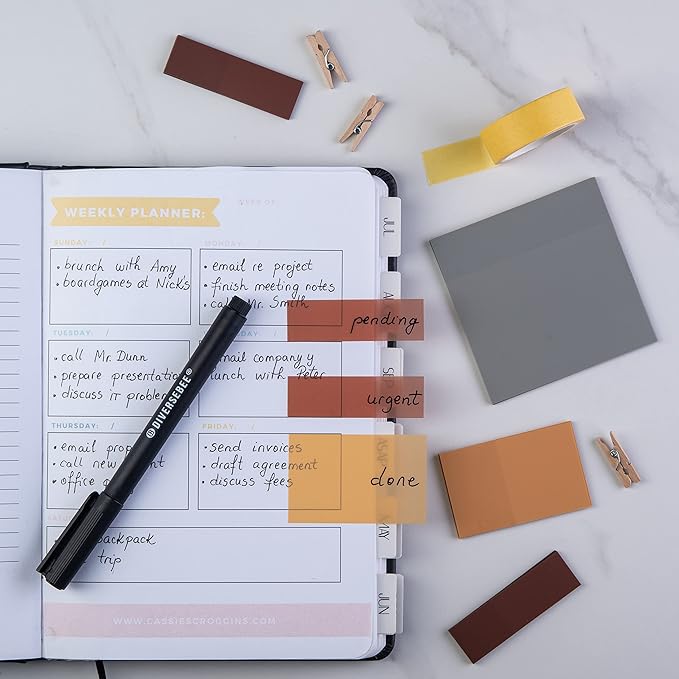 WEEKLY PLANNER:
WEEK OF
SUNDAY: /
MONDAY: /
• brunch with Amy
• boardgames at Nick's
• email re project
• finish meeting notes
• call Mr. Smith
pending
TUESDAY: /
• call Mr. Dunn
• prepare presentation
• discuss IT problem
email company y
lunch with Peter
urgent
THURSDAY: /
FRIDAY: /
• email
• call new
• office
• send invoices
• draft agreement
• discuss fees
done
backpack
trip
WWW.CASSIESCROGGINS.COM
DIVERSEBEE®
JUL
SEP
MAY
JUN